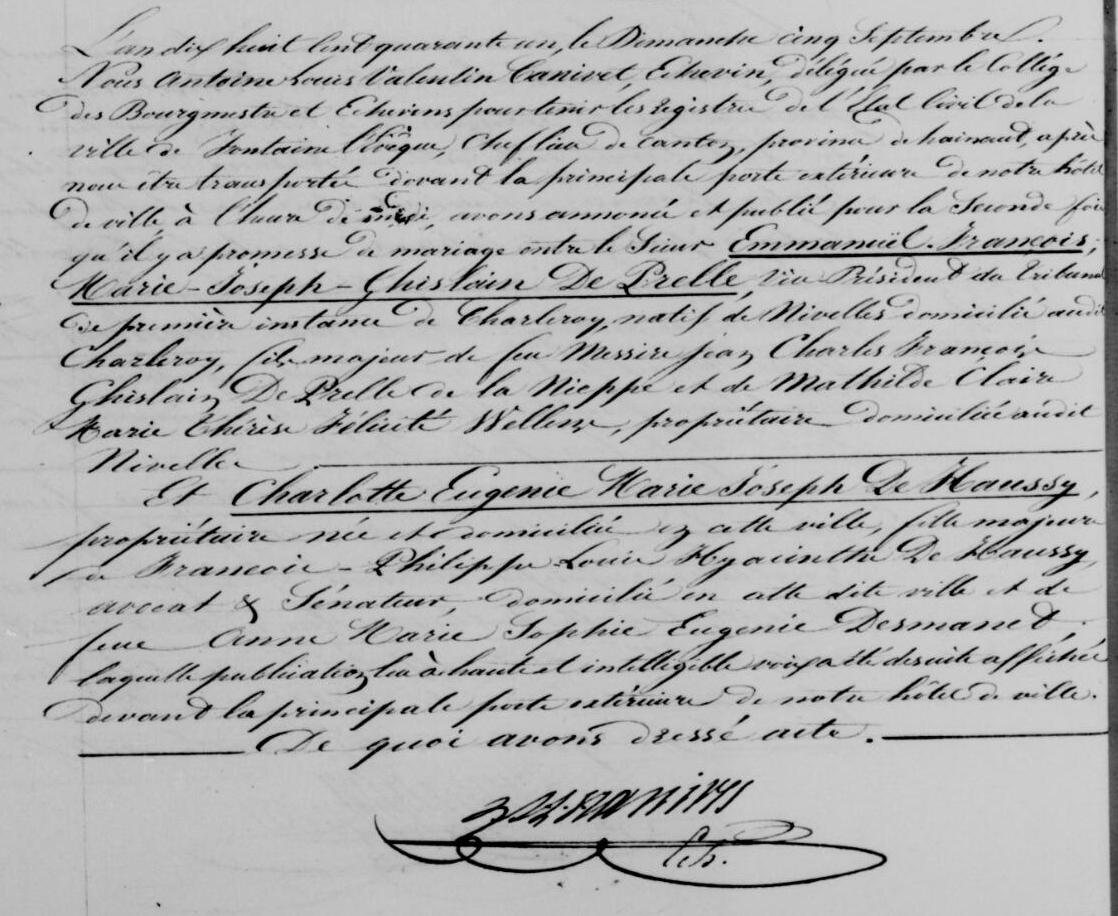 L'an dix huit Cent quarante un, le Dimanche cinq Septembre.
Nous Antoine Louis Valentin Canivet, Echevin, délégué par le Collége
des Bourgmestre et Echevins pour tenir les registre de l'Etat Civil de la
ville de Fontaine l'Evêque, Chef lieu de canton, province de hainaut, après
nous être transporté devant la principale porte extérieure de notre hôtel
de ville à l'heure de midi, avons annoncé et publié pour la Seconde fois
qu'il y a promesse de mariage entre le Sieur Emmanuël-François,
Marie-Joseph-Ghislain De Prelle, Vice-Président du Tribunal
de première instance de Charleroy, natif de Nivelles domicilié audit
Charleroy, fils majeur de feu Messire Jean Charles François
Ghislain De Prelle de la Nieppe et de Mathilde Claire
Marie Thérèse Félicité Wellens, propriétaire domiciliée audit
Nivelles
Et Charlotte Eugenie Marie Joseph De Haussy,
propriétaire née et domiciliée en cette ville, fille majeure
de François-Philippe Louis Hyacinthe De Haussy,
avocat & Sénateur, domicilié en cette dite ville et de
feue Anne Marie Sophie Eugenie Desmanet,
laquelle publication lue à haute et intelligible voix a été de suite affichée
devant la principale porte extérieure de notre hôtel de ville.
De quoi avons dressé acte.
Ech.